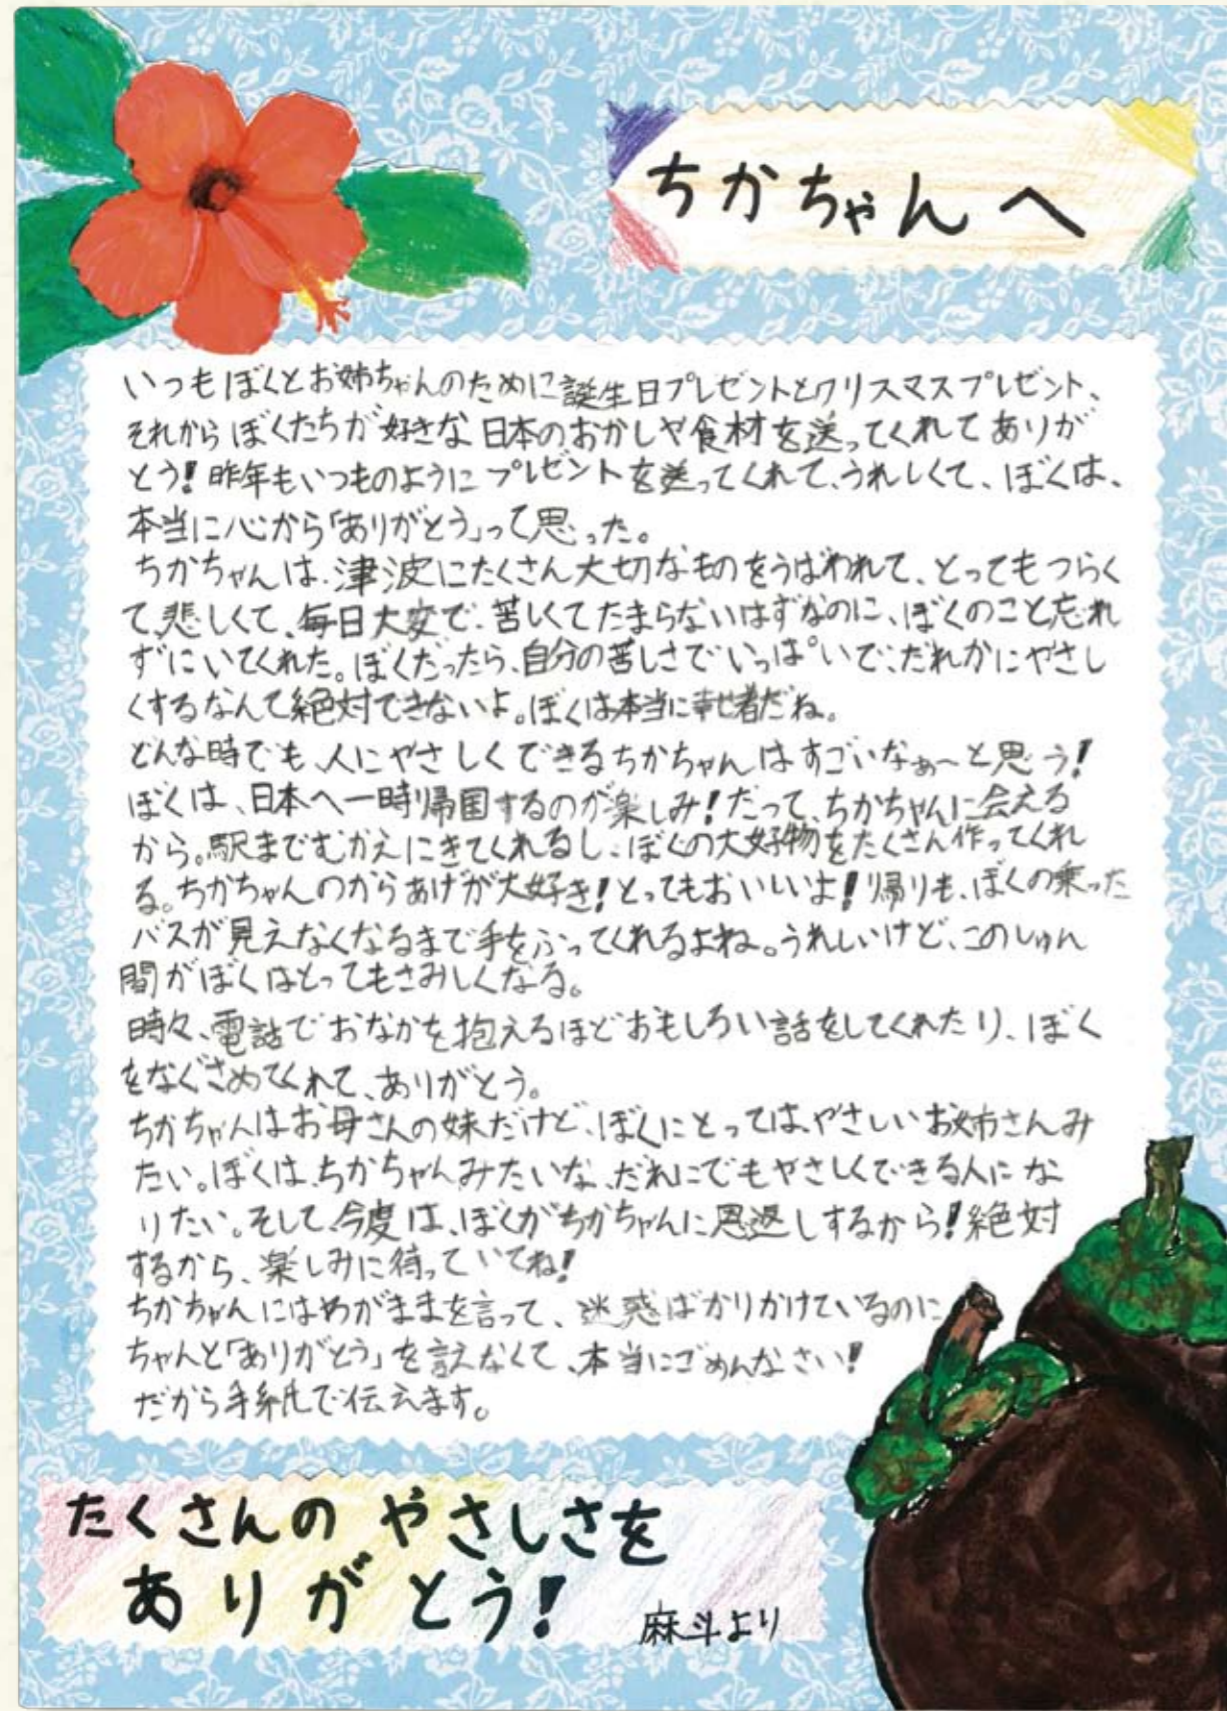 ちかちゃんへ
いつもぼくとお姉ちゃんのために誕生日プレゼントとクリスマスプレゼント、
それからぼくたちが好きな日本のおかしや食材を送ってくれてありが
とう!昨年もいつものようにプレゼントを送ってくれて、うれしくて、ぼくは、
本当に心から「ありがとう」って思った。
ちかちゃんは、津波にたくさん大切なものをうばわれて、とってもつらく
て、悲しくて、毎日大変で、苦しくてたまらないはずなのに、ぼくのこと忘れ
ずにいてくれた。ぼくだったら、自分の苦しさでいっぱいで、だれかにやさし
くするなんて絶対できないよ。ぼくは本当に幸せ者だね。
どんな時でも、人にやさしくできるちかちゃんはすごいなぁ〜と思う!
ぼくは、日本へ一時帰国するのが楽しみ!だって、ちかちゃんに会える
から。駅までむかえにきてくれるし、ぼくの大好物をたくさん作ってくれ
る。ちかちゃんのからあげが大好き!とってもおいしいよ!帰りも、ぼくの乗った
バスが見えなくなるまで手をふってくれるよね。うれしいけど、このしゅん
間がぼくはとってもさみしくなる。
時々、電話でおなかを抱えるほどおもしろい話をしてくれたり、ぼく
をなぐさめてくれて、ありがとう。
ちかちゃんはお母さんの妹だけど、ぼくにとっては、やさしいお姉さんみ
たい。ぼくは、ちかちゃんみたいな、だれにでもやさしくできる人にな
りたい。そして、今度は、ぼくがちかちゃんに恩返しするから!絶対
するから、楽しみに待っていてね!
ちかちゃんにはわがままを言って、迷惑ばかりかけているのに
ちゃんと「ありがとう」を言えなくて、本当にごめんなさい!
だから手紙で伝えます。
たくさんのやさしさを
ありがとう!
麻斗より